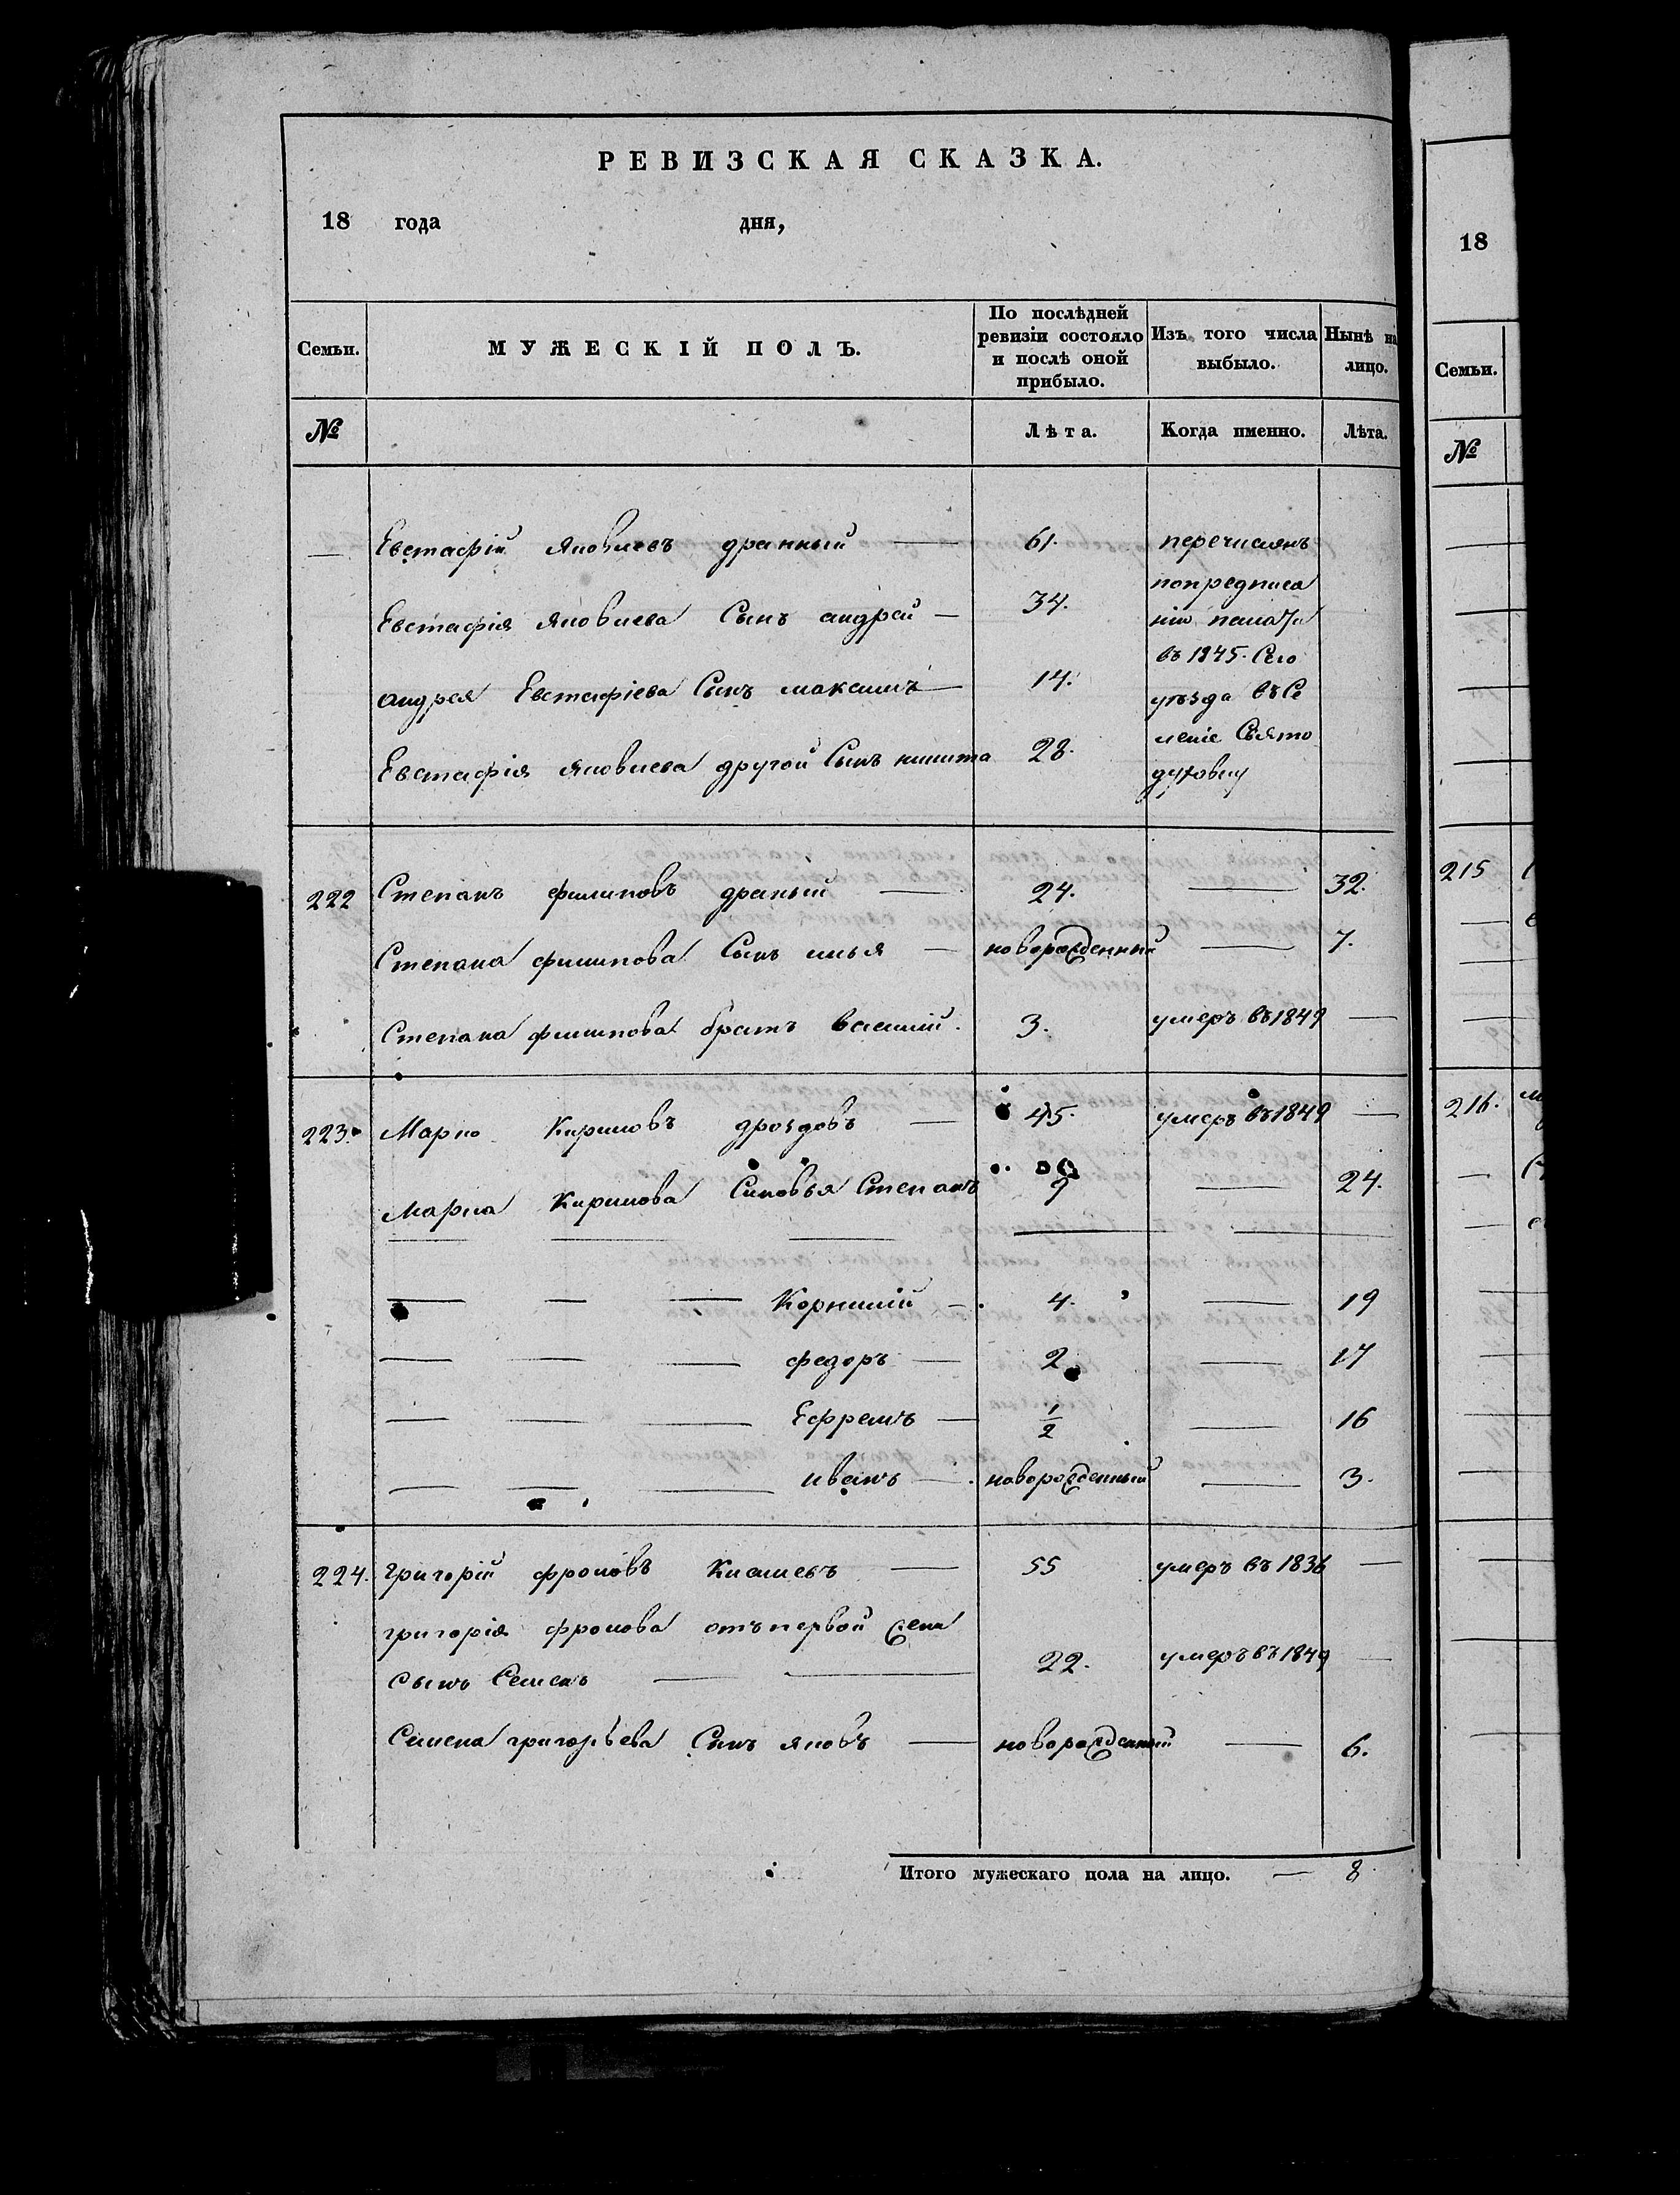 РЕВИЗСКАЯ СКАЗКА.
18 года дня,
18
Семьи. МУЖЕСКІЙ ПОЛЪ. По послѣдней ревизіи состояло и послѣ оной прибыло. Изъ того числа выбыло. Нынѣ на лицо.
Семьи.
№ Лѣта. Когда именно. Лѣта.
№
— Евстафій Яковлевъ дранный — 61. перечисленъ
попредписа
Евстафія Яковлева Сынъ андрей — 34. нію палаты
въ 1845. Сего
андрея Евстафіева Сынъ максимъ — 14. уѣзда въ Се
леніе Свято
Евстафія Яковлева другой Сынъ никита 28. духовку
222 Степанъ филиповъ драный — 24. — 32.
215
Степана филипова Сынъ илья — новорожденный — 7.
Степана филипова братъ василій. 3. умеръ въ 1849 —
223. Марко Кириловъ дроздовъ — 45. умеръ въ 1849 —
216.
Марка Кирилова Сыновья Степанъ 9 — 24.
— — — Корнилій — 4. — 19
— — — федоръ — 2 — 17
— — — Ефремъ — 1/2 — 16
— — — иванъ — новорожденный — 3.
224. григорій фроловъ — 55 умеръ въ 1836 —
григорія фролова отъ первой жены
сынъ Семенъ — 22. умеръ въ 1849 —
Семена григорьева Сынъ яковъ — новорожденный — 6.
Итого мужескаго пола на лицо. — 8